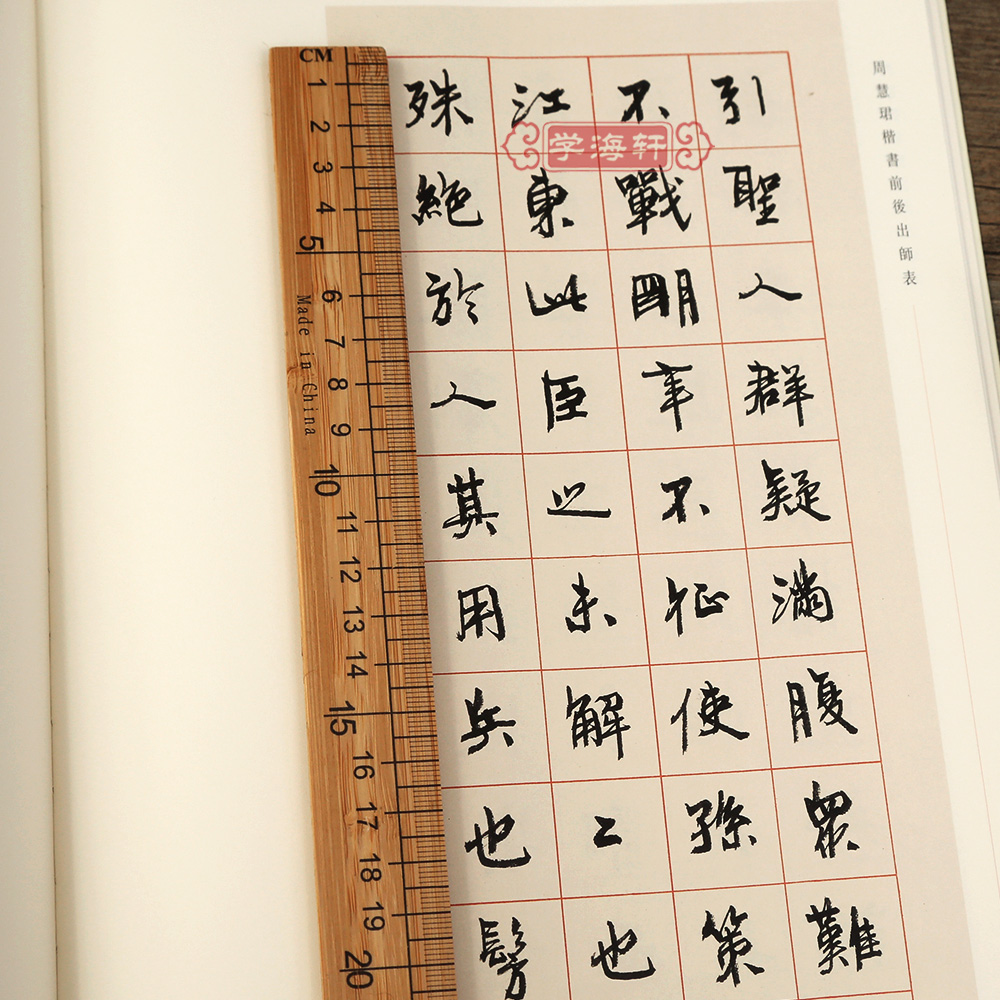 周慧珺楷書前後出師表
引聖人群疑滿腹眾難
不戰明年不征使孫策
江東此臣之未解二也
殊絕於人其用兵也髣
学海轩
CM
1
2
3
4
5
6
7
8
9
10
11
12
13
14
15
16
17
18
19
20
Made in China